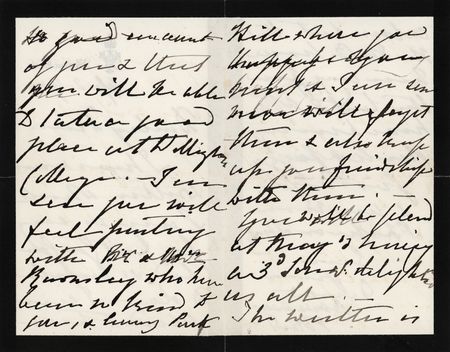 a good account
of you & that
you will be able
to take a good
place at Wellington
College. – I am
sure you will
feel parting
with Mr & Mrs
Barnsley who have
been so kind to
you, & Sunny Park
Hill where you
I am sure
never will forget
them & also keep
up your friendship
with them.
You will be pleased
at May's having
a 3d Son & delights
us all. –
The weather is